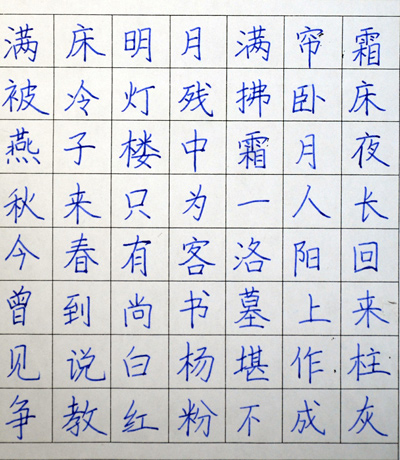 满床明月满帘霜
被冷灯残拂卧床
燕子楼中霜月夜
秋来只为一人长
今春有客洛阳回
曾到尚书墓上来
见说白杨堪作柱
争教红粉不成灰